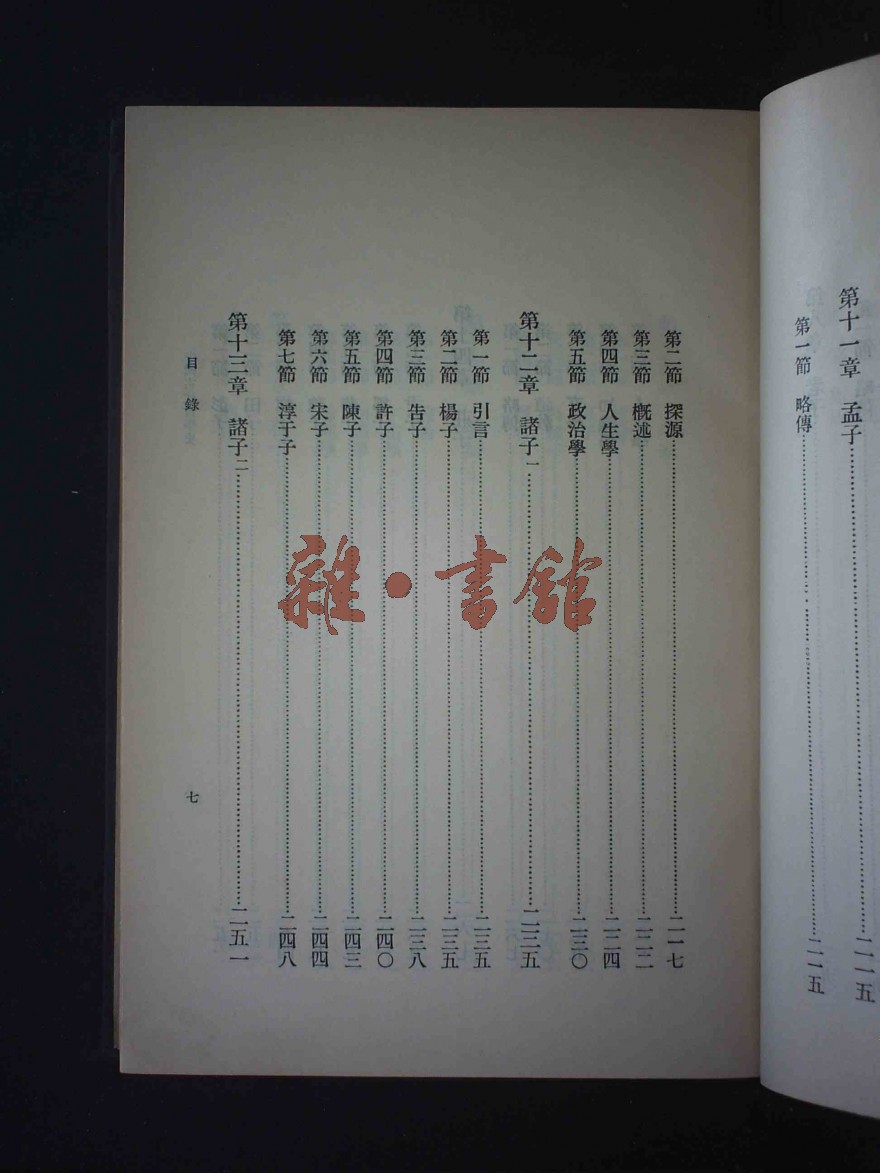 第十一章 孟子……二一五
第一節 略傳……二一五
第二節 探源……二一七
第三節 概述……二二二
第四節 人生學……二二四
第五節 政治學……二三〇
第十二章 諸子一……二三五
第一節 引言……二三五
第二節 楊子……二三五
第三節 告子……二三八
第四節 許子……二四〇
第五節 陳子……二四三
第六節 宋子……二四四
第七節 淳于子……二四八
第十三章 諸子二……二五一
目錄
七
雜·書館